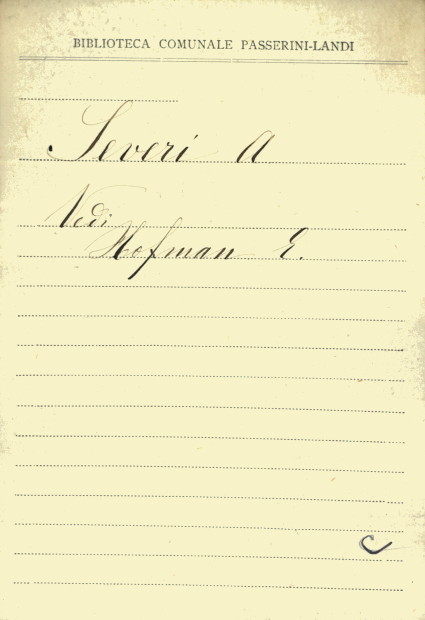 BIBLIOTECA COMUNALE PASSERINI-LANDI
Severi A
Vedi
Hofman E.
C